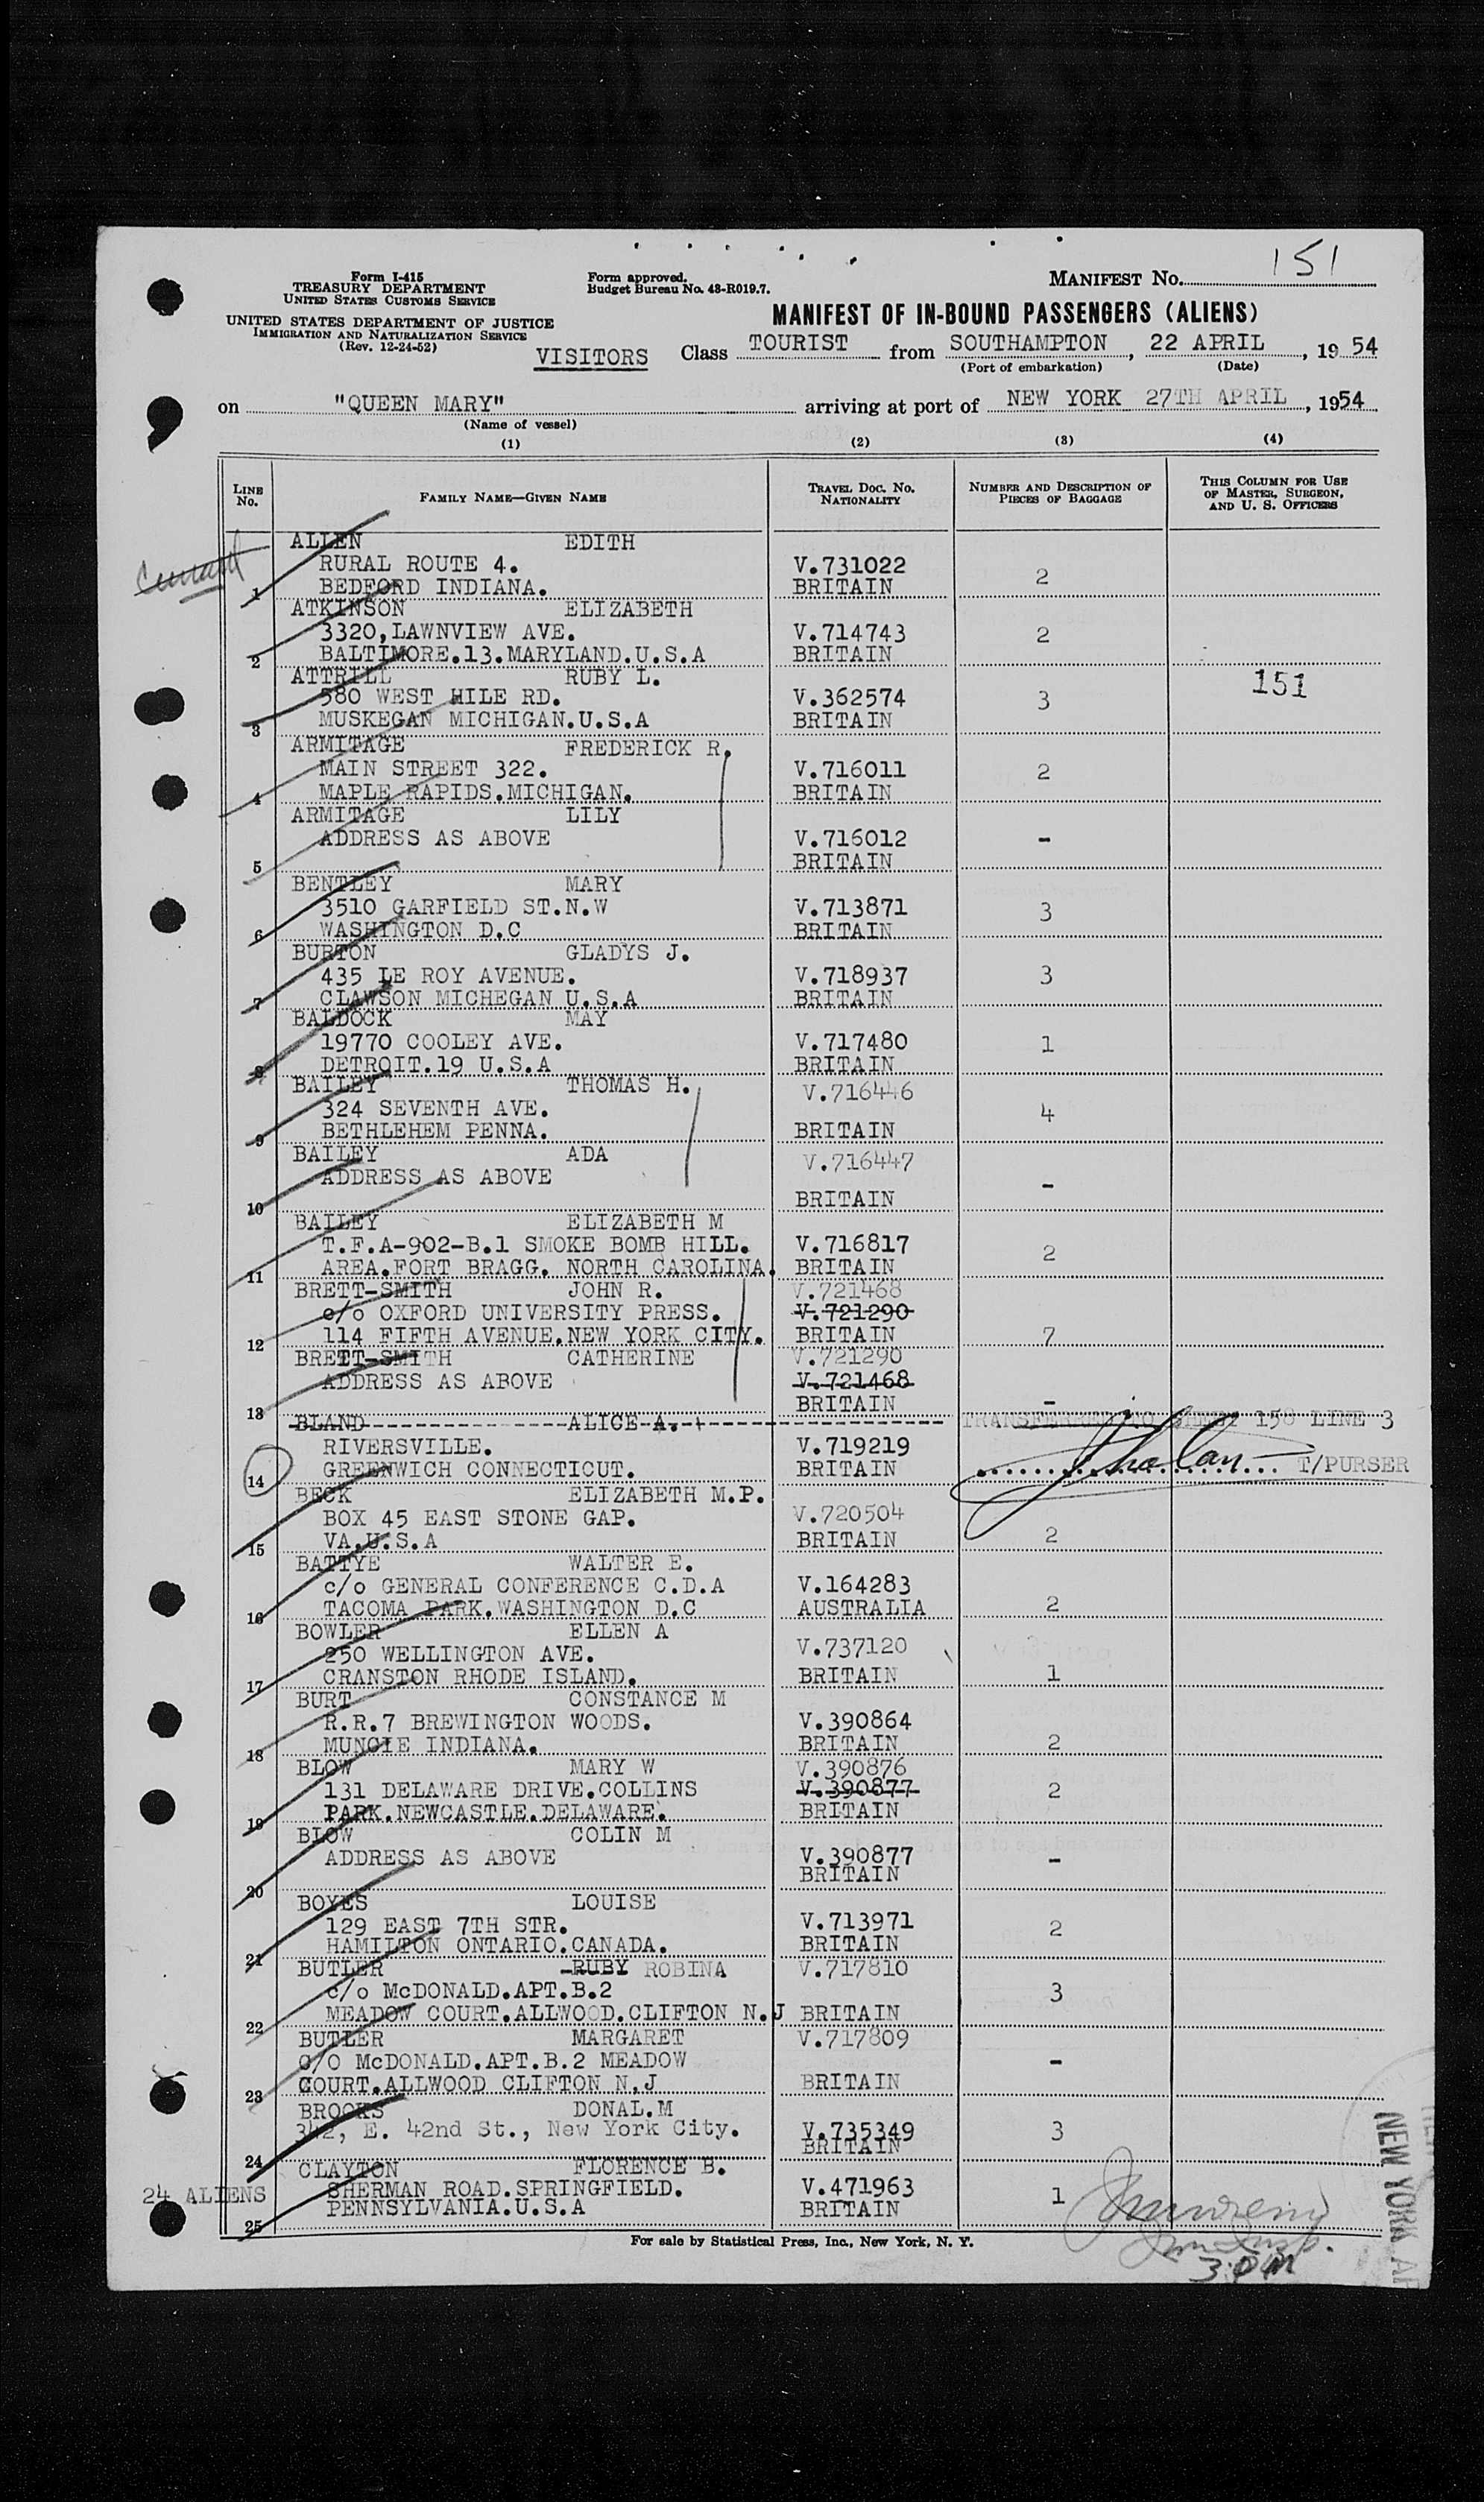 151
Form I-415
TREASURY DEPARTMENT
UNITED STATES CUSTOMS SERVICE
Form approved.
Budget Bureau No. 43-R019.7.
MANIFEST No. 151
UNITED STATES DEPARTMENT OF JUSTICE
IMMIGRATION AND NATURALIZATION SERVICE
(Rev. 12-24-52)
MANIFEST OF IN-BOUND PASSENGERS (ALIENS)
VISITORS Class TOURIST from SOUTHAMPTON, 22 APRIL, 1954
(Port of embarkation) (Date)
on "QUEEN MARY" arriving at port of NEW YORK 27TH APRIL, 1954
(Name of vessel)
(1) (2) (3) (4)
LINE No. FAMILY NAME—GIVEN NAME TRAVEL DOC. No. NATIONALITY NUMBER AND DESCRIPTION OF PIECES OF BAGGAGE THIS COLUMN FOR USE OF MASTER, SURGEON, AND U. S. OFFICERS
ALLEN EDITH
RURAL ROUTE 4. V.731022 2
1 BEDFORD INDIANA. BRITAIN
ATKINSON ELIZABETH
3320,LAWNVIEW AVE. V.714743 2
2 BALTIMORE.13.MARYLAND.U.S.A BRITAIN
ATTRILL RUBY L. 151
580 WEST HILE RD. V.362574 3
3 MUSKEGAN MICHIGAN.U.S.A BRITAIN
ARMITAGE FREDERICK R.
MAIN STREET 322. V.716011 2
4 MAPLE RAPIDS.MICHIGAN. BRITAIN
ARMITAGE LILY
ADDRESS AS ABOVE V.716012 -
5 BRITAIN
BENTLEY MARY
3510 GARFIELD ST.N.W V.713871 3
6 WASHINGTON D.C BRITAIN
BURTON GLADYS J.
435 LE ROY AVENUE. V.718937 3
7 CLAWSON MICHEGAN U.S.A BRITAIN
BALDOCK MAY
19770 COOLEY AVE. V.717480 1
8 DETROIT.19 U.S.A BRITAIN
BAILEY THOMAS H. V.716446
324 SEVENTH AVE. 4
9 BETHLEHEM PENNA. BRITAIN
BAILEY ADA V.716447
ADDRESS AS ABOVE -
10 BRITAIN
BAILEY ELIZABETH M
T.F.A-902-B.1 SMOKE BOMB HILL. V.716817 2
11 AREA.FORT BRAGG. NORTH CAROLINA. BRITAIN
BRETT-SMITH JOHN R. V.721468
c/o OXFORD UNIVERSITY PRESS. V.721290
12 114 FIFTH AVENUE.NEW YORK CITY. BRITAIN 7
BRETT-SMITH CATHERINE V.721290
ADDRESS AS ABOVE V.721468
13 BRITAIN -
BLAND ALICE A. TRANSFERRED TO SHEET 150 LINE 3
RIVERSVILLE. V.719219
14 GREENWICH CONNECTICUT. BRITAIN T/PURSER
BECK ELIZABETH M.P.
BOX 45 EAST STONE GAP. V.720504
15 VA.U.S.A BRITAIN 2
BATTYE WALTER E.
c/o GENERAL CONFERENCE C.D.A V.164283
16 TACOMA PARK.WASHINGTON D.C AUSTRALIA 2
BOWLER ELLEN A
250 WELLINGTON AVE. V.737120
17 CRANSTON RHODE ISLAND. BRITAIN 1
BURT CONSTANCE M
R.R.7 BREWINGTON WOODS. V.390864
18 MUNCIE INDIANA. BRITAIN 2
BLOW MARY W V.390876
131 DELAWARE DRIVE.COLLINS V.390877 2
19 PARK.NEWCASTLE.DELAWARE. BRITAIN
BLOW COLIN M
ADDRESS AS ABOVE V.390877 -
20 BRITAIN
BOYES LOUISE
129 EAST 7TH STR. V.713971 2
21 HAMILTON ONTARIO.CANADA. BRITAIN
BUTLER RUBY ROBINA V.717810
c/o McDONALD.APT.B.2 3
22 MEADOW COURT.ALLWOOD.CLIFTON N.J BRITAIN
BUTLER MARGARET V.717809
C/O McDONALD.APT.B.2 MEADOW -
23 COURT.ALLWOOD CLIFTON N.J BRITAIN
BROOKS DONAL.M
342, E. 42nd St., New York City. V.735349 3
24 BRITAIN
CLAYTON FLORENCE B.
24 ALIENS SHERMAN ROAD.SPRINGFIELD. V.471963 1
25 PENNSYLVANIA.U.S.A BRITAIN
For sale by Statistical Press, Inc., New York, N. Y.
NEW YORK